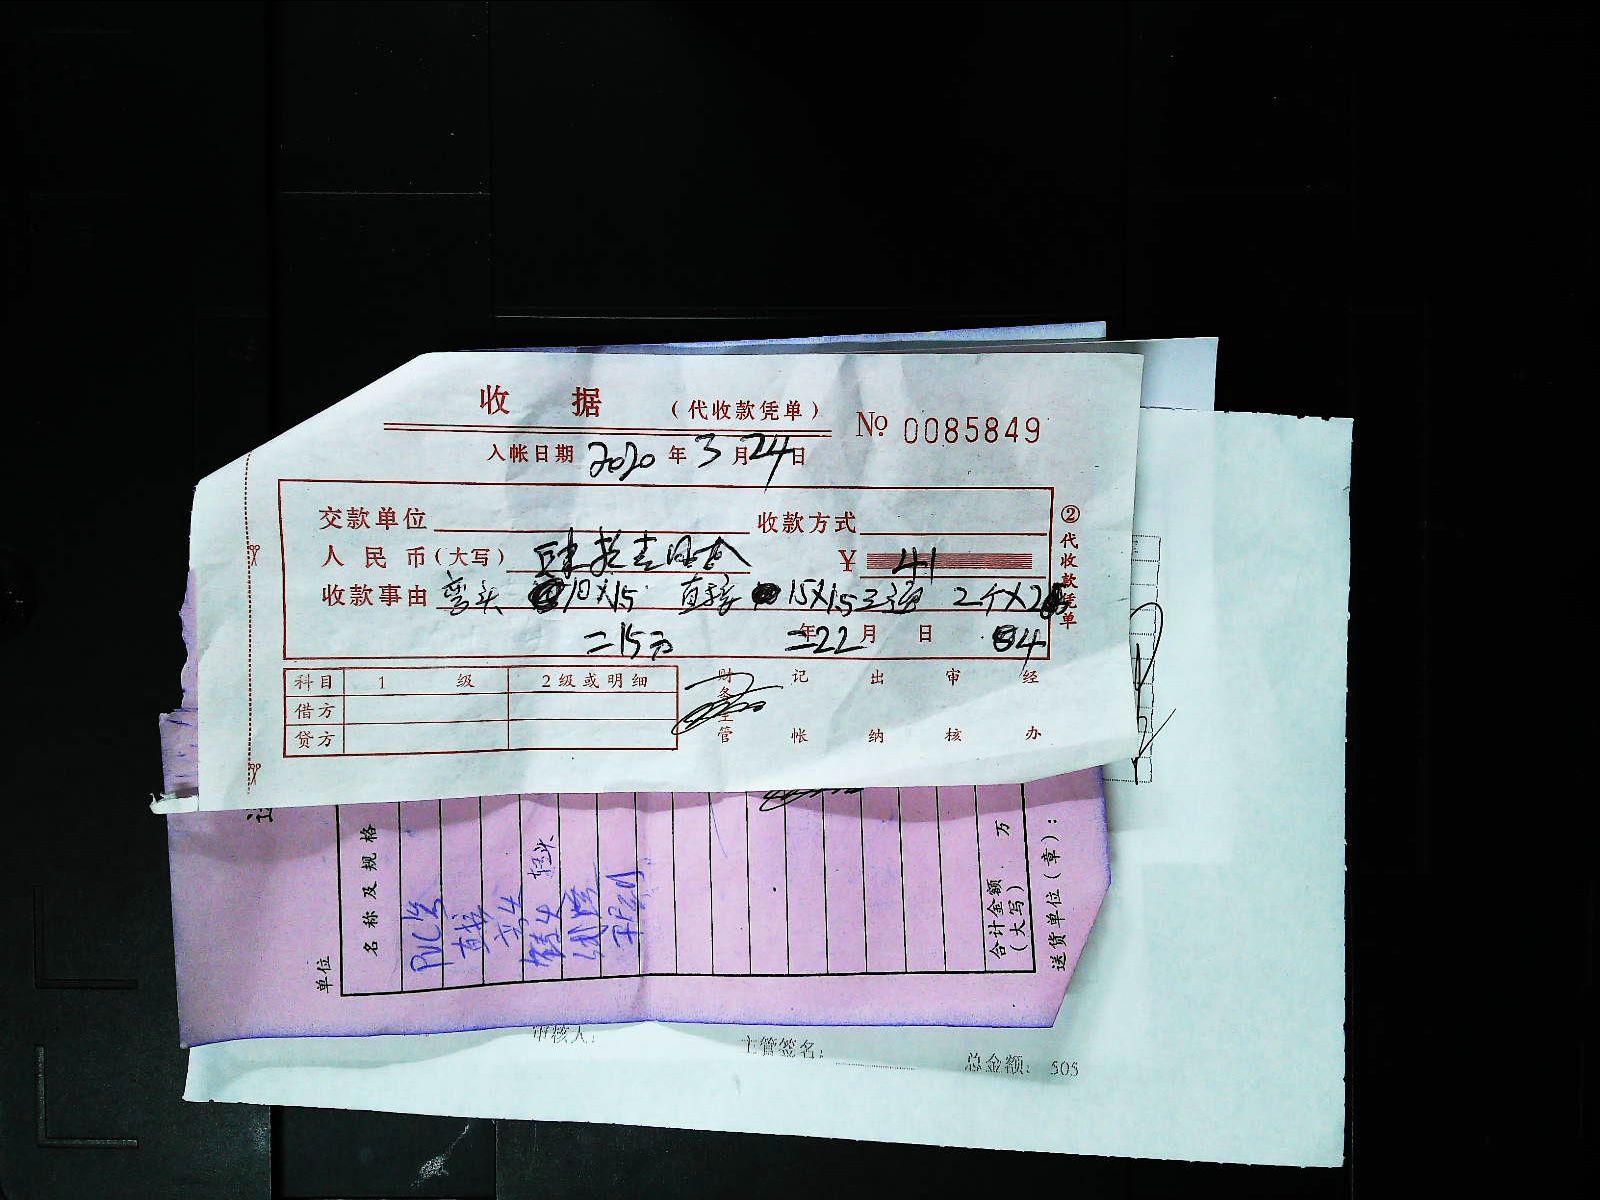 收 据 (代收款凭单) No 0085849
入帐日期 2020 年 3 月 24 日
交款单位 收款方式
人民币(大写) 肆拾壹 ¥ 41
收款事由 弯头 10×15 直接 15×1.5 三通 2个×2
=15元 =22 年 月 日 4
②代收款凭单
科目 1 级 2级或明细
借方
贷方
财务主管 记帐 出纳 审核 经办
单位
名称及规格
PVC
直接
弯头
接头
合计金额(大写) 万
送货单位(章):
审核人:
主管签名:
总金额: 505